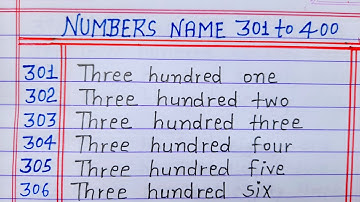 NUMBERS NAME 301 to 400
301 Three hundred one
302 Three hundred two
303 Three hundred three
304 Three hundred four
305 Three hundred five
306 Three hundred six